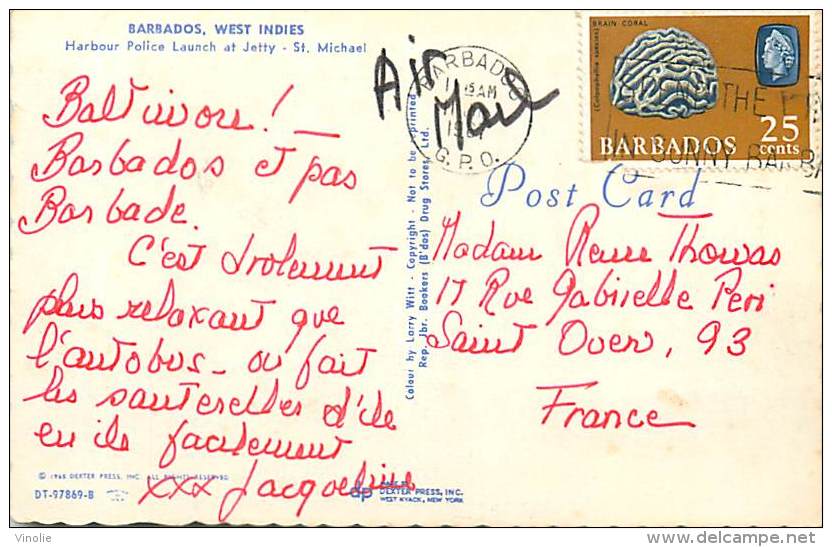 BARBADOS, WEST INDIES
Harbour Police Launch at Jetty - St. Michael
Air
Mail
BARBADOS
15AM
G.P.O.
BRAIN CORAL
BARBADOS 25
cents
THE
IN SUNNY BARB
Post Card
Baltimore!
Barbados et pas
Barbade.
C'est drolement
plus relaxant que
l'autobus - on fait
les sauterelles d'ile
en ile facilement
xxx Jacqueline
Colour by Larry Witt - Copyright - Not to be reprinted
Rep. Jbr. Bookers (B'dos) Drug Stores, Ltd.
Madam Thomas
17 Rue Gabrielle Peri
Saint Ouen, 93
France
© 1965 DEXTER PRESS, INC. ALL RIGHTS RESERVED
DT-97869-B
dp
DEXTER PRESS, INC.
WEST NYACK, NEW YORK
Vinolie
www.delcampe.net